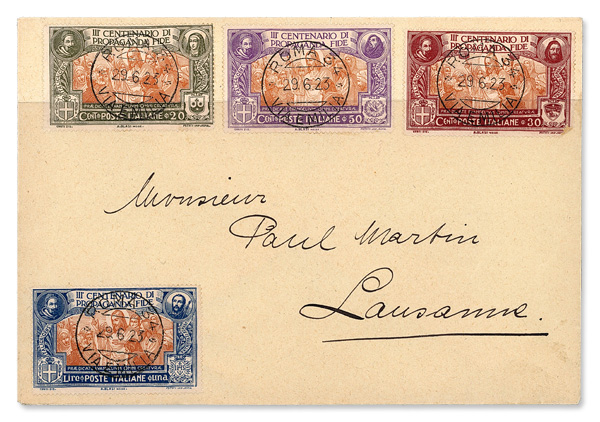 III CENTENARIO DI
PROPAGANDA FIDE
ROMA
29.6.23
Cent. POSTE ITALIANE 20
III CENTENARIO DI
PROPAGANDA FIDE
ROMA
29.6.23
Cent. POSTE ITALIANE 50
III CENTENARIO DI
PROPAGANDA FIDE
ROMA
29.6.23
Cent. POSTE ITALIANE 30
Monsieur
Paul Martin
Lausanne.
III CENTENARIO DI
PROPAGANDA FIDE
29.6.23
Lire POSTE ITALIANE una